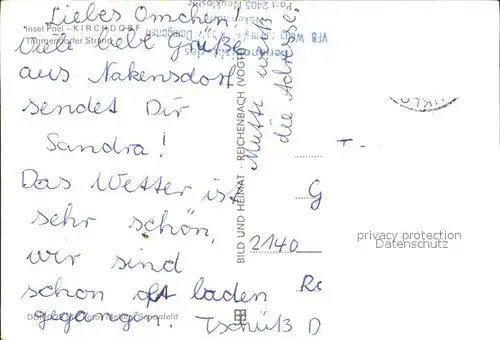 Insel Poel - KIRCHDORF
Timmendorfer Strand
Liebes Omchen!
Viele liebe Grüße
aus Nakensdorf
sendet Dir
Sandra!
Das Wetter ist
sehr schön,
wir sind
schon oft baden
gegangen. Tschüß
Mutti weiß
die Adresse.
BILD UND HEIMAT · REICHENBACH (VOGTL)
Post 2405 Neukloster
G
2140
privacy protection
Datenschutz
D